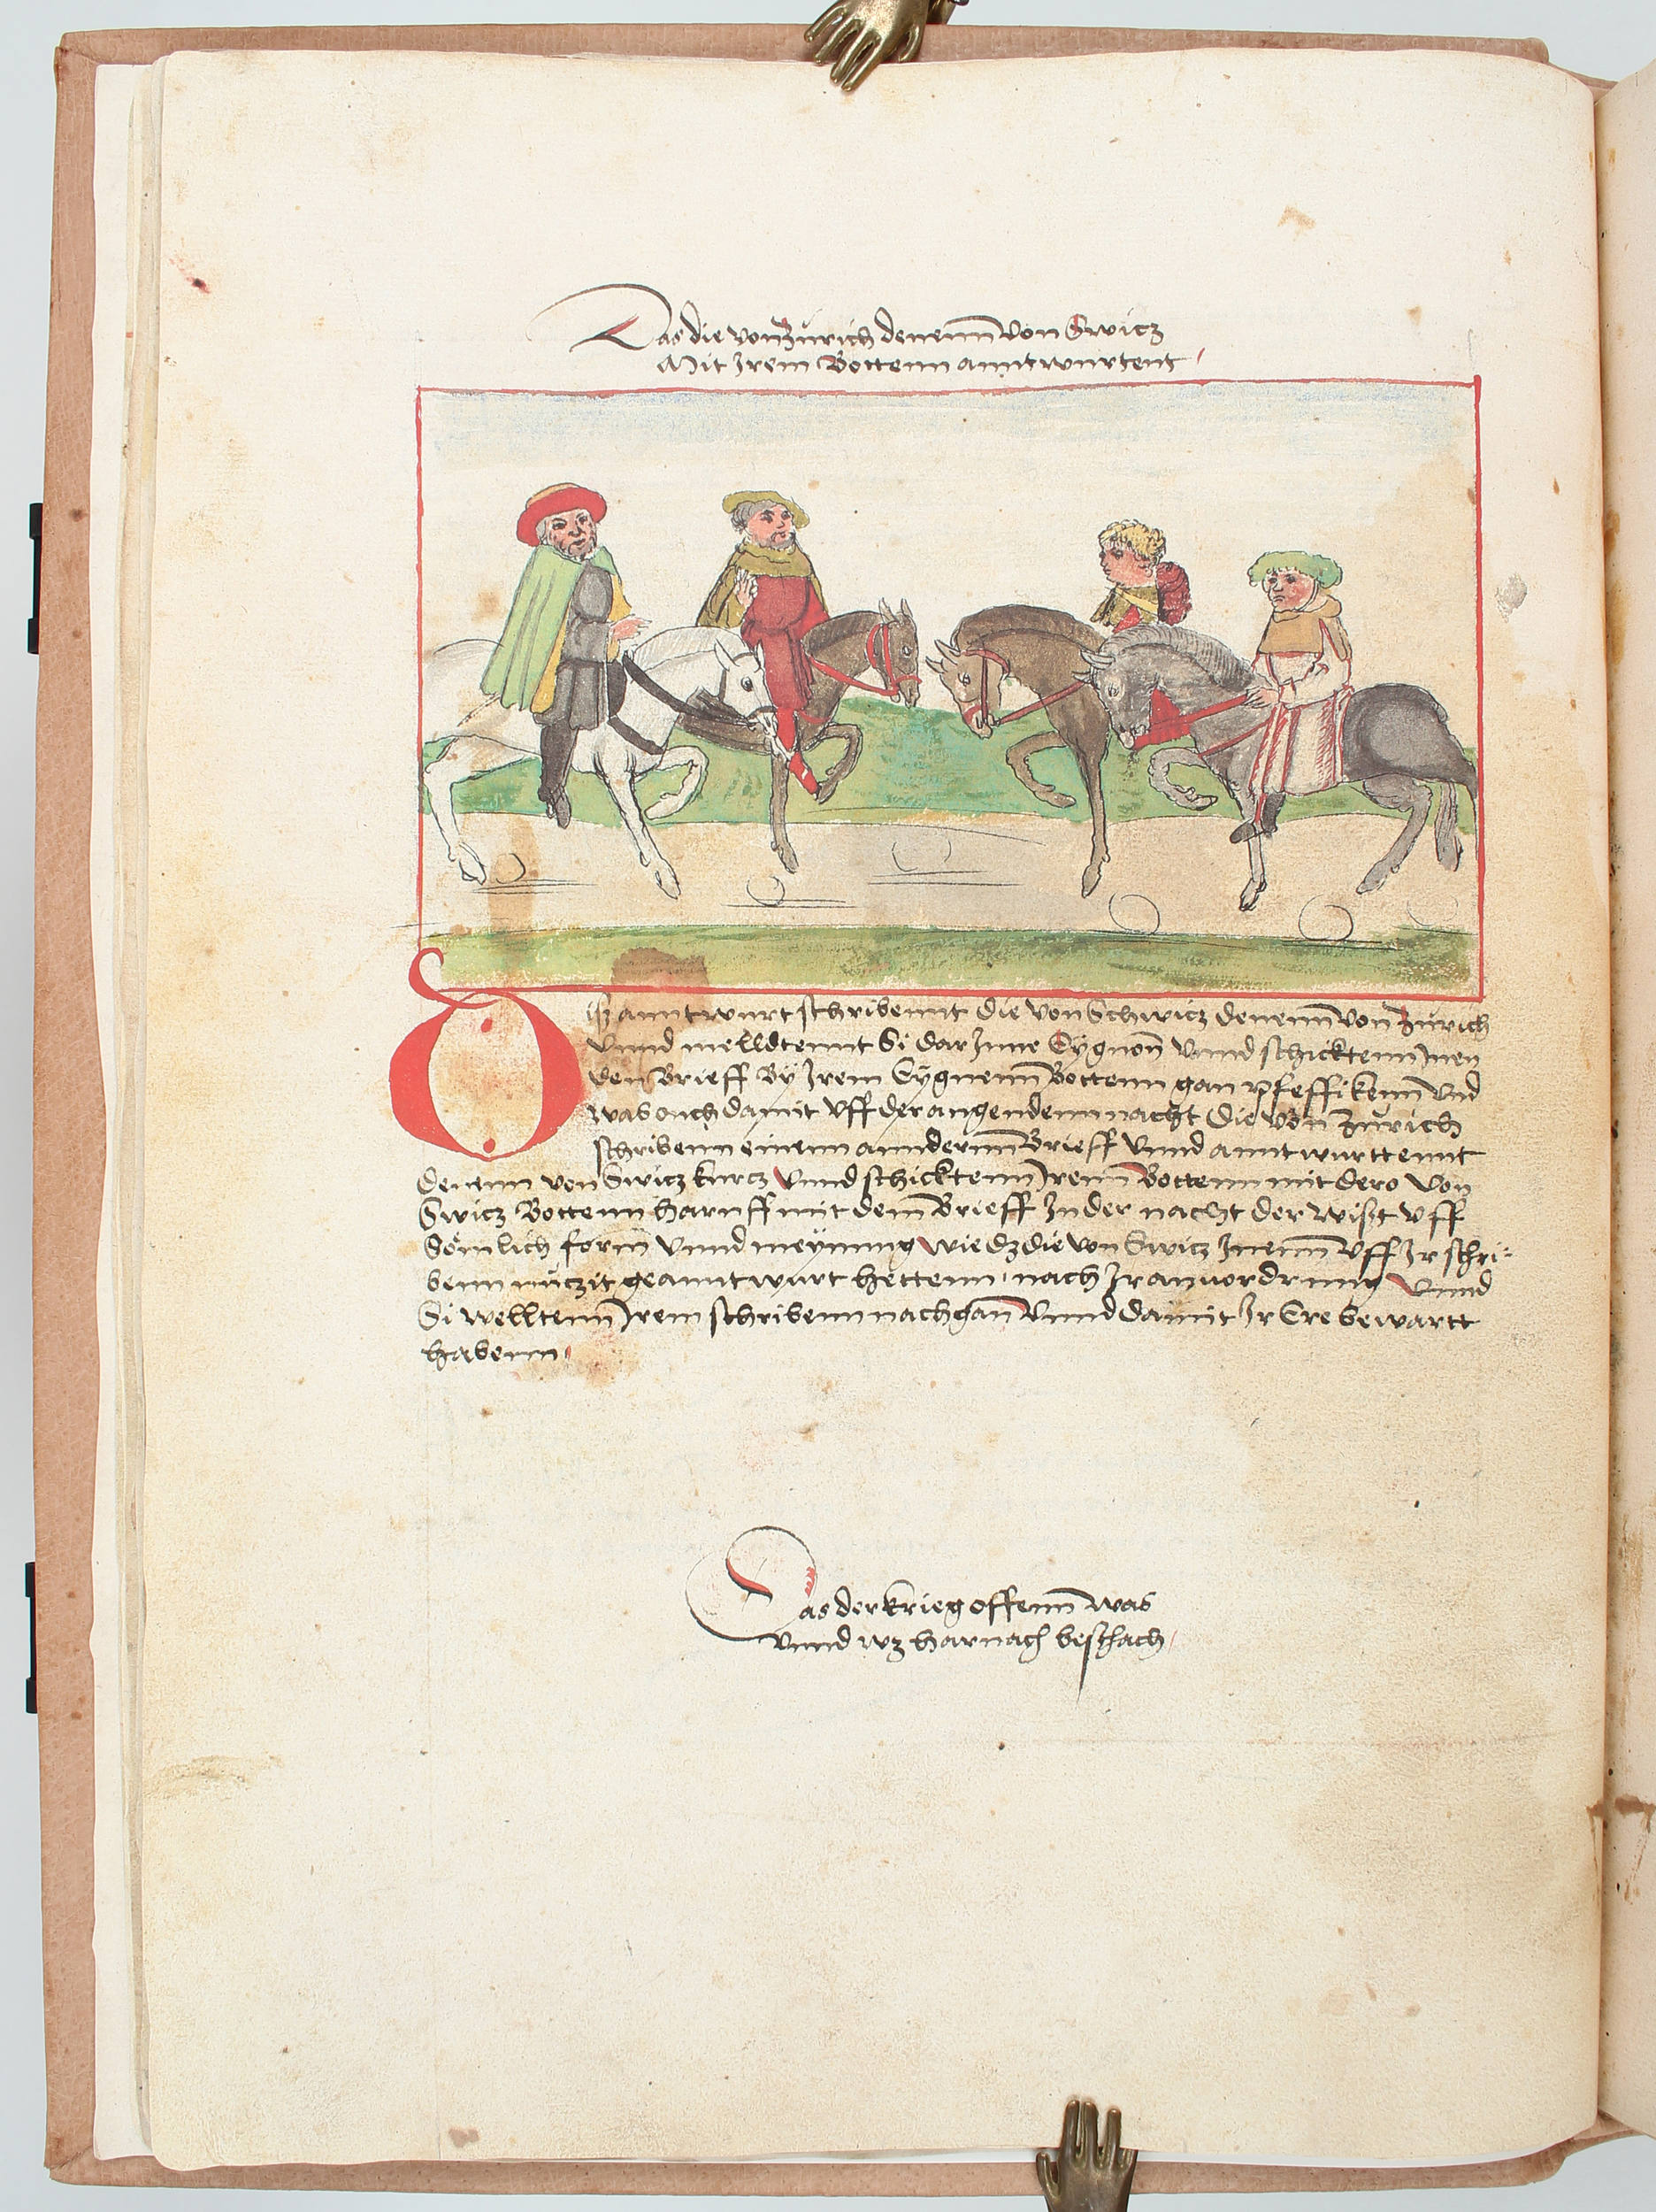 Das die von Zürich denenn von Swicz
Mit Irem Bottenn anntwurtent
Disz anntwurt schribennt die von Schwicz denenn von Zürich
vnnd melldtennt Si dar Inne Eygnon vnnd schicktenn Inen
den Brieff By Irem Eygnenn Bottenn gan pfeffikenn vnd
was ouch damit vff der angendenn nacht Die von Zürich
schribenn einenn annderenn Brieff vnnd anntwurttennt
denenn von Swicz kurcz vnnd schicktenn Irenn Bottenn mit dero von
Swicz Bottenn haruff mit dem Brieff In der nacht der wiszt vff
Sömlich form vnnd meynung wie dz die von Swicz Inenn vff Ir schri-
benn nüczit geanntwurt hettenn nach Ir anuordrung vnnd
Si welltenn Irem schribenn nachgan vnnd damit Ir Ere bewartt
habenn
Das der krieg offenn was
vnnd wz harnach beschach